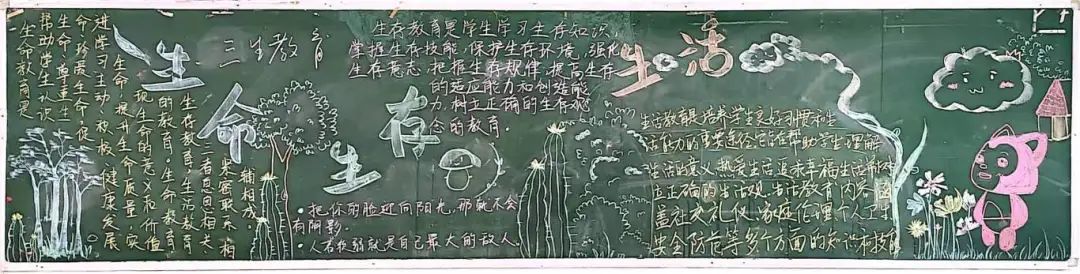 三生教育
生命
生存
生活
生命教育是
帮助学生认识
生命、尊重生
命、珍爱生命,促
进学习主动、积极、健康发展
生命,提升生命质量,实
现生命的意义和价值
的教育。生命教育
生存教育,生活教育
三者息息相关
紧密联系,相
辅相成。
生存教育是学生学习生存知识,
掌握生存技能,保护生存环境,强化
生存意志,把握生存规律,提高生存
的适应能力和创造能
力,树立正确的生存观
念的教育。
·把你的脸迎向阳光,那就不会
有阴影
·人若软弱就是自己最大的敌人。
生活教育是培养学生良好习惯和生
活能力的重要途径它旨在帮助学生理解
生活的意义,热爱生活,追求幸福生活,
立正确的生活观,生活教育内容涵
盖社交礼仪、家庭伦理、个人卫生
安全防范等多个方面的知识和技能